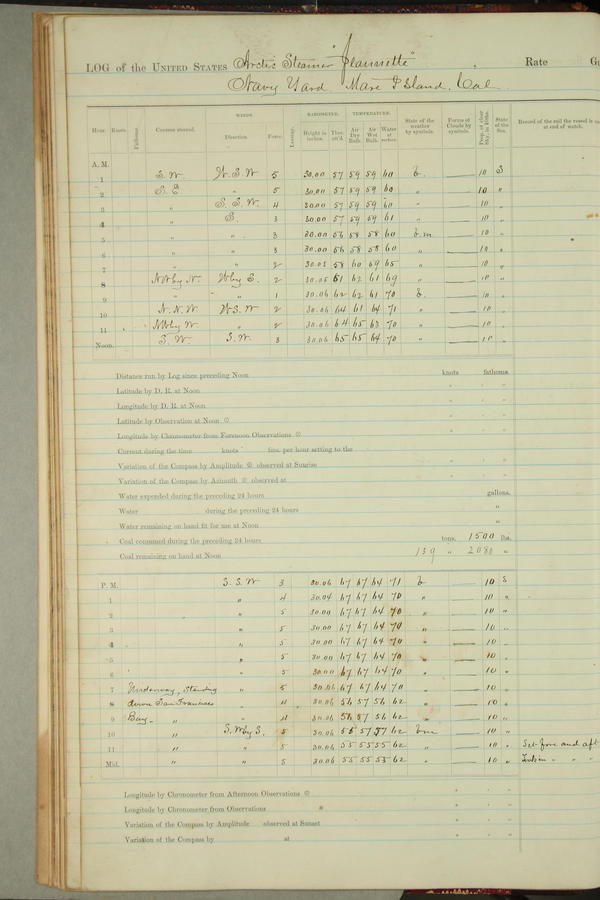 LOG of the UNITED STATES Arctic Steamer "Jeannette", Rate
Navy Yard Mare Island, Cal.
Hour. Knots. Fathoms. Courses steered. WINDS. Direction. Force. Leeway. BAROMETER. Height in inches. Ther. att'd. TEMPERATURE. Air Dry Bulb. Air Wet Bulb. Water at surface. State of the weather by symbols. Forms of Clouds by symbols. Prop. of clear Sky in 10ths. State of the Sea. Record of the sail the vessel is un at end of watch.
A. M.
1 S.W. W.S.W 5 30.00 57 59 59 60 b. 10 S
2 S.E " 5 30.00 57 59 59 60 " 10 "
3 " S.S.W. 4 30.00 57 59 59 60 " 10 "
4 " S. 3 30.00 57 59 59 61 " 10 "
5 " " 3 30.00 56 58 58 60 b.m 10 "
6 " " 3 30.00 56 58 58 60 " 10 "
7 " " 2 30.02 58 60 59 65 " 10 "
8 NW by N. W by S. 2 30.05 61 62 61 69 " 10 "
9 " " 1 30.06 62 62 61 70 b. 10 "
10 N.N.W. W.S.W 2 30.06 64 61 64 71 " 10 "
11 NW by W. " 2 30.06 64 65 63 70 " 10 "
Noon. S.W. S.W. 3 30.06 65 65 64 70 " 10 "
Distance run by Log since preceding Noon knots fathoms
Latitude by D. R. at Noon ° ' "
Longitude by D. R. at Noon ° ' "
Latitude by Observation at Noon ☉ ° ' "
Longitude by Chronometer from Forenoon Observations ☉ ° ' "
Current during the time knots fms. per hour setting to the
Variation of the Compass by Amplitude ☉ observed at Sunrise ° ' "
Variation of the Compass by Azimuth ☉ observed at ° ' "
Water expended during the preceding 24 hours gallons.
Water during the preceding 24 hours "
Water remaining on hand fit for use at Noon "
Coal consumed during the preceding 24 hours tons, 1500 lbs.
Coal remaining on hand at Noon 139 " 2080 "
P. M. S.S.W 3 30.06 67 67 64 71 b 10 S
1 " 4 30.04 67 67 64 70 " 10 "
2 " 5 30.00 67 67 64 70 " 10 "
3 " 5 30.00 67 67 64 70 " 10 "
4 " 5 30.00 67 67 64 70 " 10 "
5 " 5 30.00 67 67 64 70 " 10 "
6 " 5 30.00 67 67 64 70 " 10 "
7 Underway, standing " 5 30.06 67 67 64 70 " 10 "
8 down San Francisco " 4 30.06 56 57 56 62 " 10 "
9 Bay. " " 4 30.06 56 57 56 62 " 10 "
10 " S.W by S. 5 30.06 55 57 57 62 bm 10 "
11 " " 5 30.06 55 55 55 62 " 10 " Set fore and aft
Mid. " " 5 30.06 55 55 55 62 " 10 " Taken " " "
Longitude by Chronometer from Afternoon Observations ☉ ° ' "
Longitude by Chronometer from Observations * ° ' "
Variation of the Compass by Amplitude observed at Sunset ° ' "
Variation of the Compass by at ° ' "